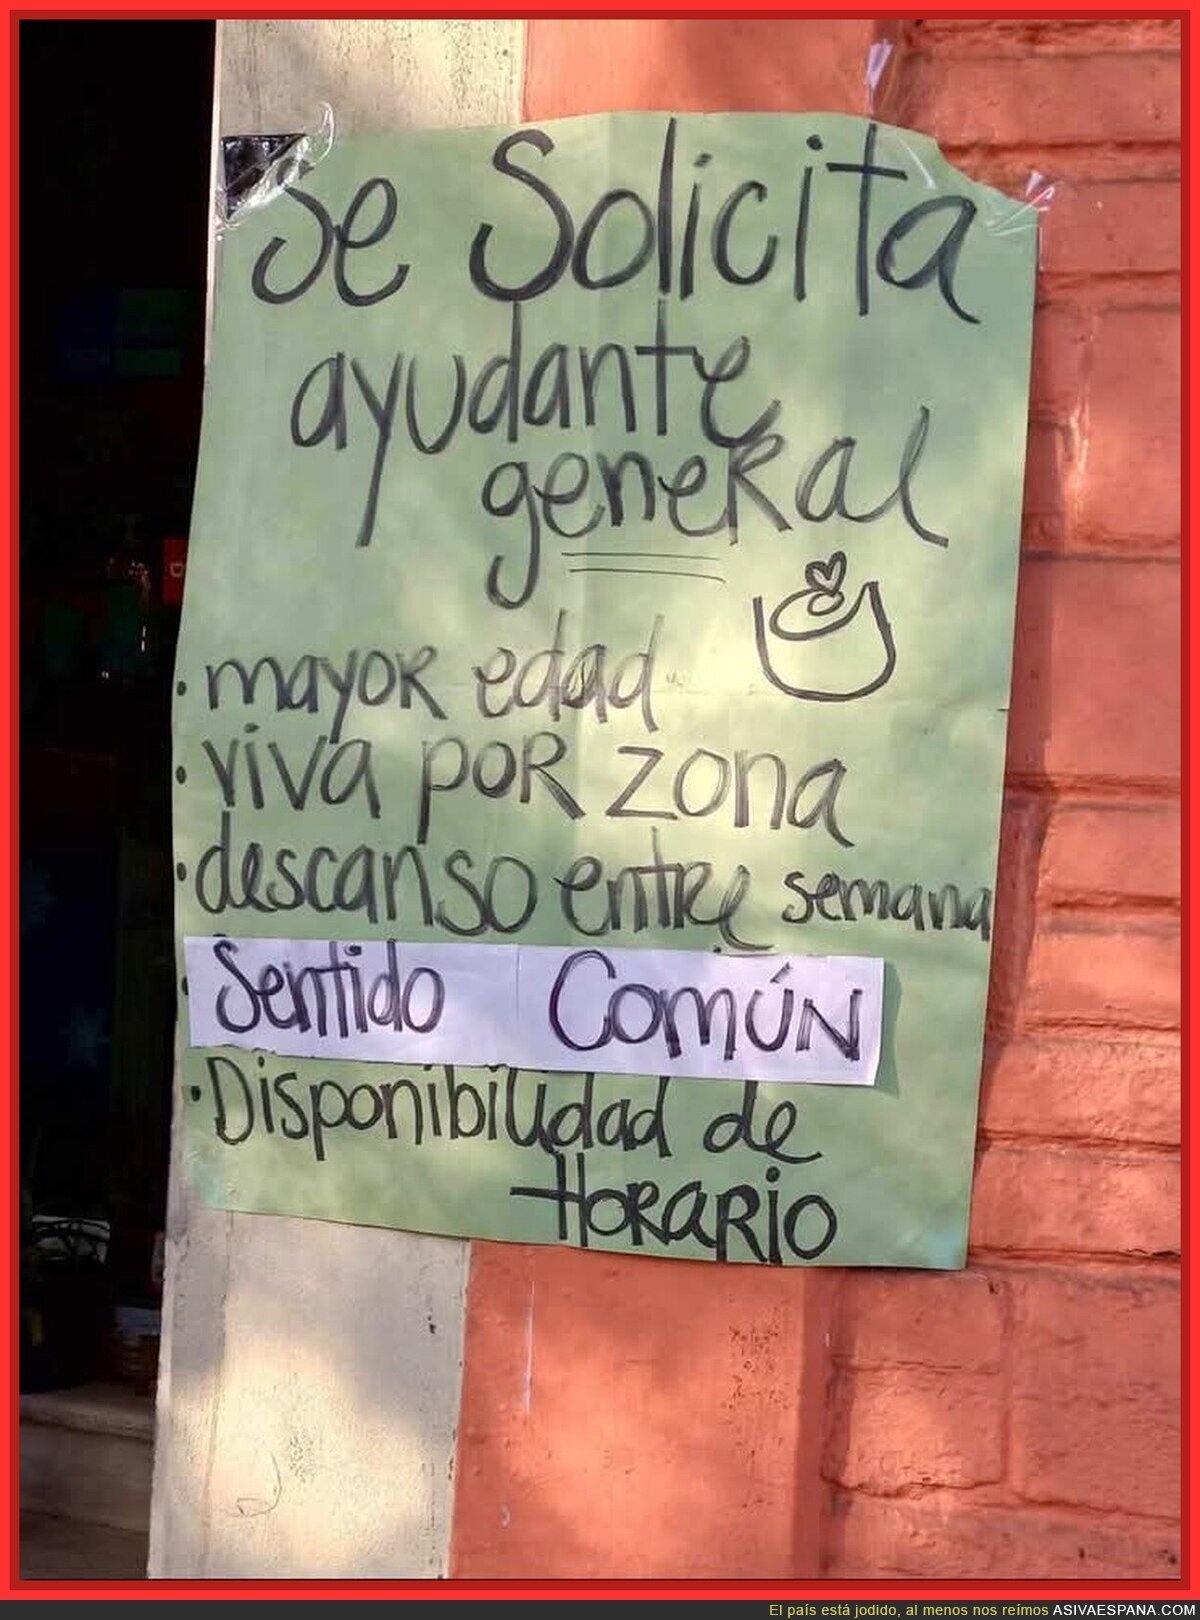 Se Solicita
ayudante
general
• mayor edad
• viva por zona
• descanso entre semana
Sentido Común
• Disponibilidad de
Horario
El país está jodido, al menos nos reímos ASIVAESPANA.COM